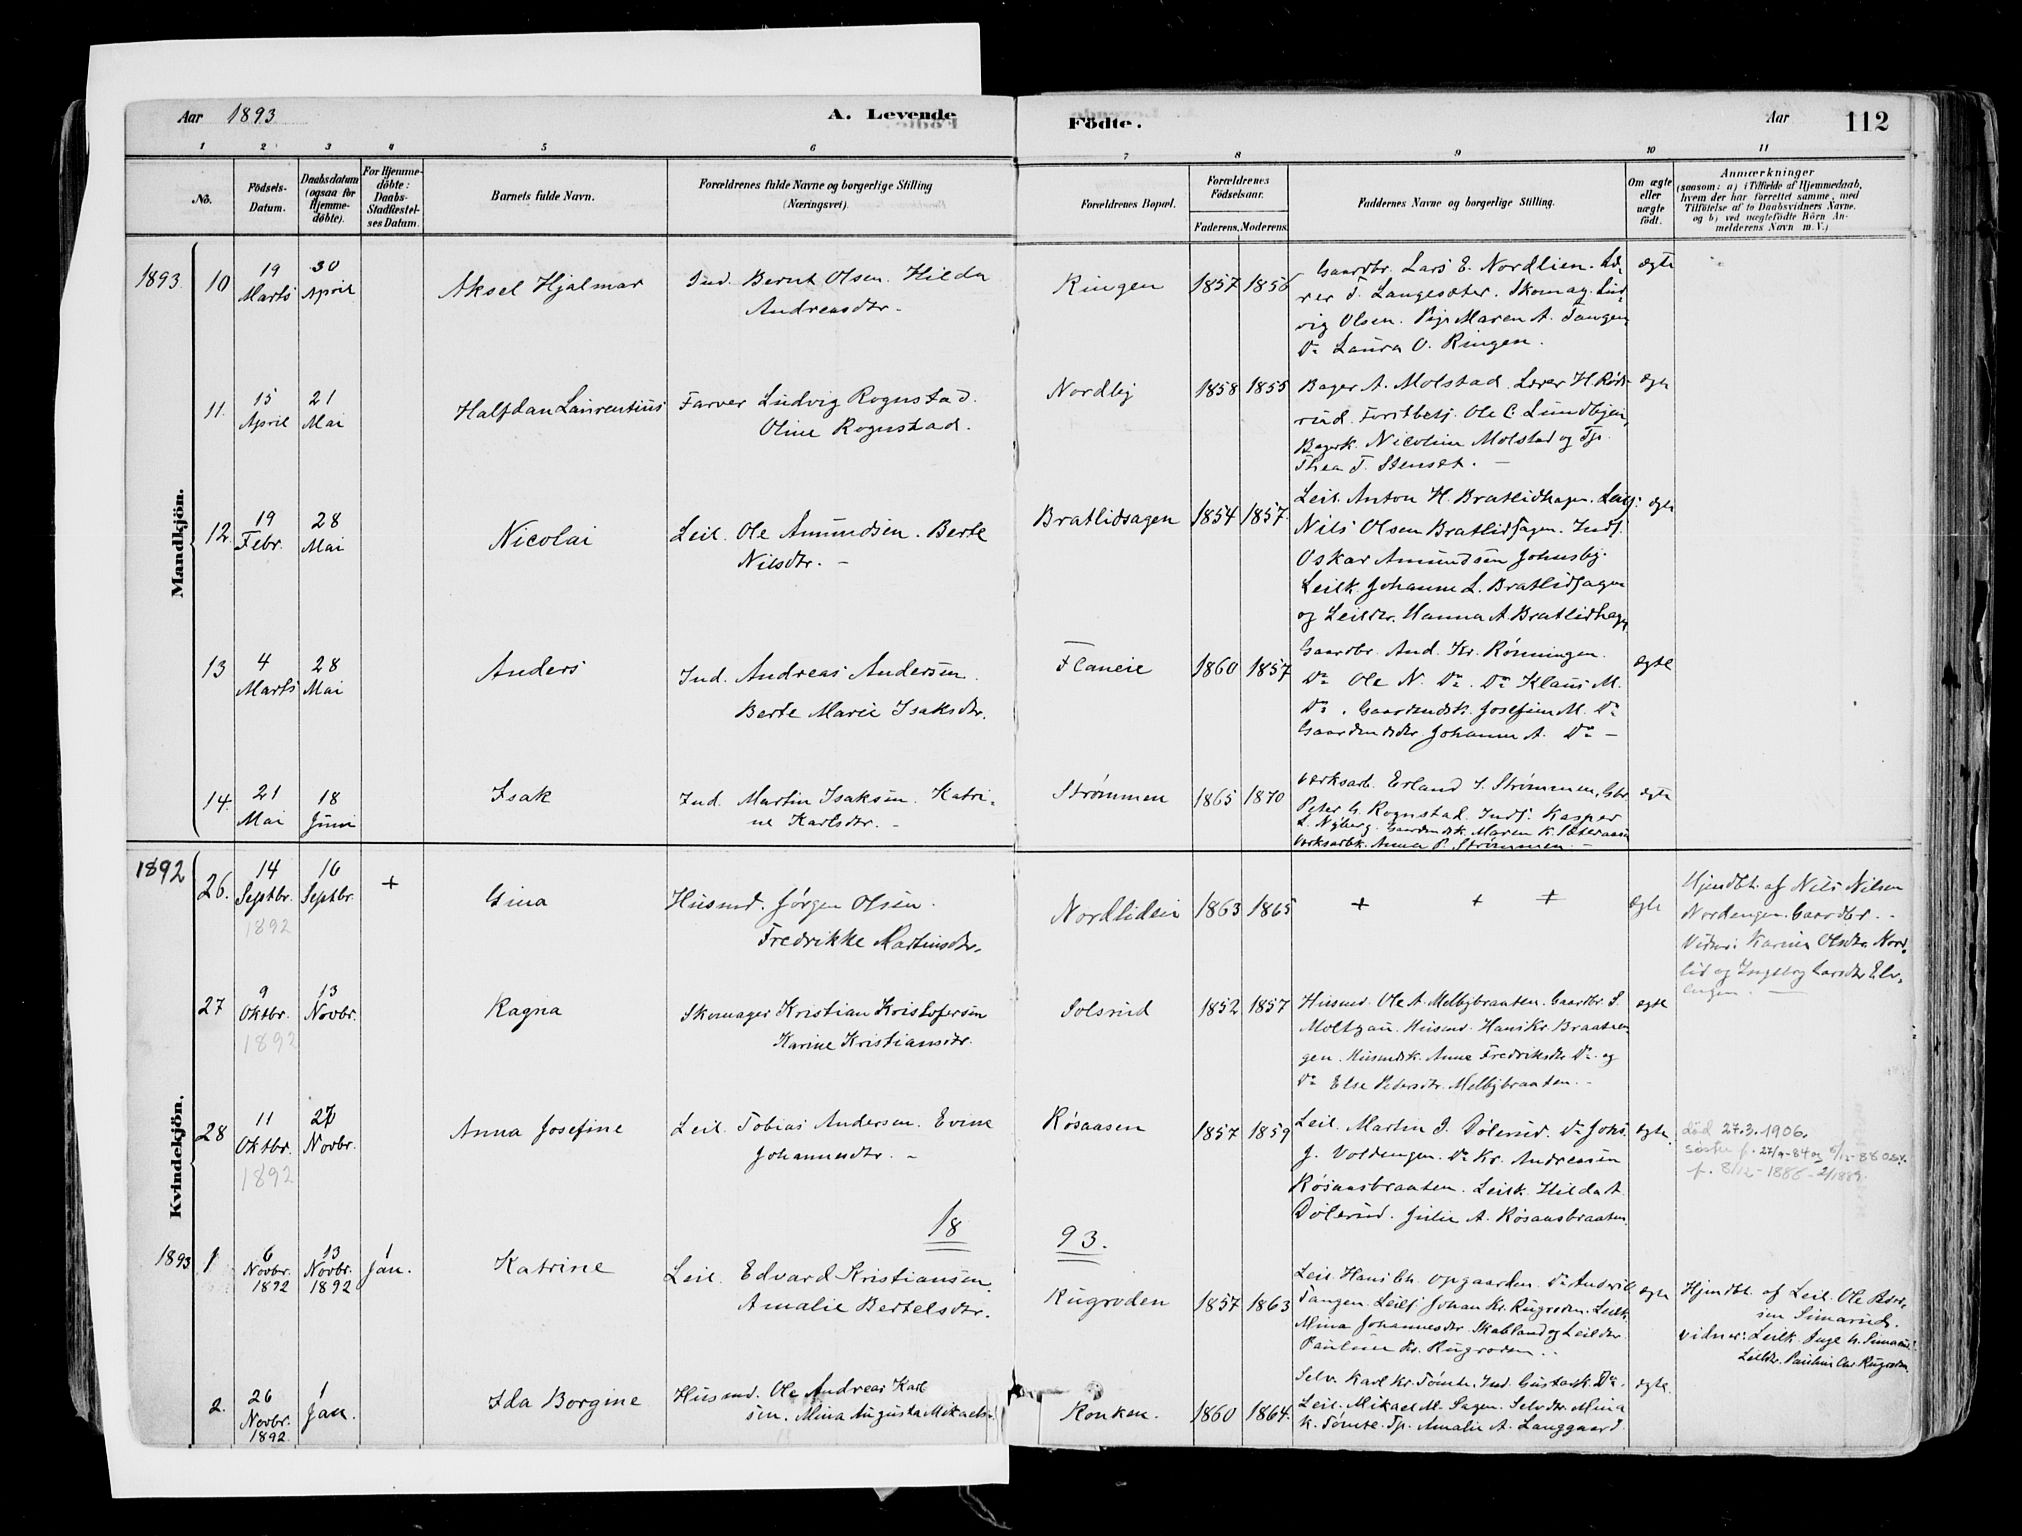 Aar 1893 A. Levende
Födte. Aar 112
1 2 3 4 5 6 7 8 9 10 11
No.
Födsels-
Datum.
Daabsdatum
(ogsaa for
Hjemme-
döbte).
For Hjemme-
döbte:
Daabs-
Stadfæstel-
ses Datum.
Barnets fulde Navn.
Forældrenes fulde Navne og borgerlige Stilling
(Næringsvei).
Forældrenes Bopæl.
Forældrenes
Födselsaar.
Faderens. Moderens.
Faddernes Navne og borgerlige Stilling.
Om ægte
eller
uægte
födt.
Anmærkninger
(saasom: a) i Tilfælde af Hjemmedaab,
hvem der har forrettet samme, med
Tilföielse af to Daabsvidners Navne.
og b) ved uægtefödte Börn An-
melderens Navn m. V.)
Mandkjön.
1893 10 19 Marts 30 April Aksel Hjalmar
Ind. Bernt Olsen. Hilda
Andreasdtr.
Ringen 1857 1856
Gaardbr. Lars E. Nordlien. Læ-
rer T. Langesæter. Skomag. Lud-
vig Olsen. Pige Maren A. Tangen
Do Laura O. Ringen.
ægte
11. 15 April 21 Mai Halfdan Laurentius
Farver Ludvig Rognstad.
Oline Rognstad.
Nordby 1858 1855
Bager A. Molstad. Lærer H. Røds-
rud. Forstbetj. Ole C. Lundbyen,
Bagerk. Nicoline Molstad og Tjp.
Thea T. Stenset. —
ægte
12. 19 Febr. 28 Mai Nicolai
Leil. Ole Amundsen. Berte
Nilsdtr. —
Bratlidsagen 1854 1857
Leil. Anton H. Bratlidhagen. Leilj.
Nils Olsen Bratlidsagen. Indj.
Oskar Amundsen Johnsby.
Leilk. Johanne L. Bratlidsagen
og Leildtr. Hanna A. Bratlidhagen
ægte
13 4 Marts 28 Mai Anders
Ind. Andreas Andersen.
Berte Marie Isaksdtr.
Flaneie 1860 1857
Gaardbr. And. Kr. Rønningen.
Do Ole N. Do. Do Klaus M.
Do. Gaardmdsk. Josefine M. Do
Gaardmdsdtr. Johanne A. Do —
ægte
14. 21 Mai 18 Juni Isak
Ind. Martin Isaksen. Katri-
ne Karlsdtr. —
Strømmen 1865 1870
Verksarb. Erland I. Strømmen, Gbr
Peter G. Rognstad. Indj. Kasper
L. Nyberg. Gaardmdsk. Maren K. Sæteraasen
Verksarbk. Anna P. Strømmen. —
ægte
Kvindekjön.
1892 26. 14 Septbr. 1892 16 Septbr. + Gina
Husmd. Jørgen Olsen.
Fredrikke Martinsdtr.
Nordlideie 1863 1865 + + +
ægte
Hjemdbt. af Nils Nilsen
Nordengen. Gaardbr. —
Vidner: Karine Olsdtr. Nord-
lid og Ingeborg Larsdtr. Elv-
engen. —
27 9 Oktbr. 1892 13 Novbr. Ragna
Skomager Kristian Kristofersen
Karine Kristiansdtr.
Solsrud 1852 1857
Husmd. Ole A. Melbybraaten. Gaardbr. S.
Moltzau. Husmd. Hans Kr. Braaten-
gen. Husmdsk. Anne Fredriksdtr. Do og
Do Else Pedersdtr. Melbybraaten. —
ægte
28 11 Oktbr. 1892 27 Novbr. Anna Josefine
Leil. Tobias Andersen. Evine
Johannesdtr. —
Røsaasen 1857 1859
Leil. Martin J. Dølerud. Do Johs.
J. Voldengen. Do Kr. Andreasen
Røsaasbraaten. Leilk. Hilda A.
Dølerud. Julie A. Røsaasbraaten.
ægte.
død 27.3.1906.
søstre f. 27/9-84 og 8/12-88 osv.
f. 8/12-1886-2/1889.
18 93.
1893 1 6 Novbr. 1892 13 Novbr. 1892 1 Jan. Katrine
Leil. Edvard Kristiansen.
Amalie Bertelsdtr.
Rugroden 1857 1863
Leil. Hans Ch. Opgaarden. Do
Tangen. Leilj. Johan Kr. Rugroden. Leilk.
Mina Johannesdtr. Skabland og Leildtr.
Pauline Kr. Rugroden. —
ægte
Hjemdbt. af Leil. Ole
sen Simarud.
Vidner: Leilk. Inge G. Simarud
Leildtr. Pauline Rugroden
2. 26 Novbr. 1892. 1 Jan. Ida Borgine
Husmd. Ole Andreas Karl
sen. Mina Augusta Mikaels-
Ronken. 1860 1864
Selv. Karl Kr. Tømte. Ind. Gustav K. Do.
Leil. Mikael M. Sagen. Selvdtr. Mina
K. Tømte. Tjp. Amalie A. Langgaard.
ægte.